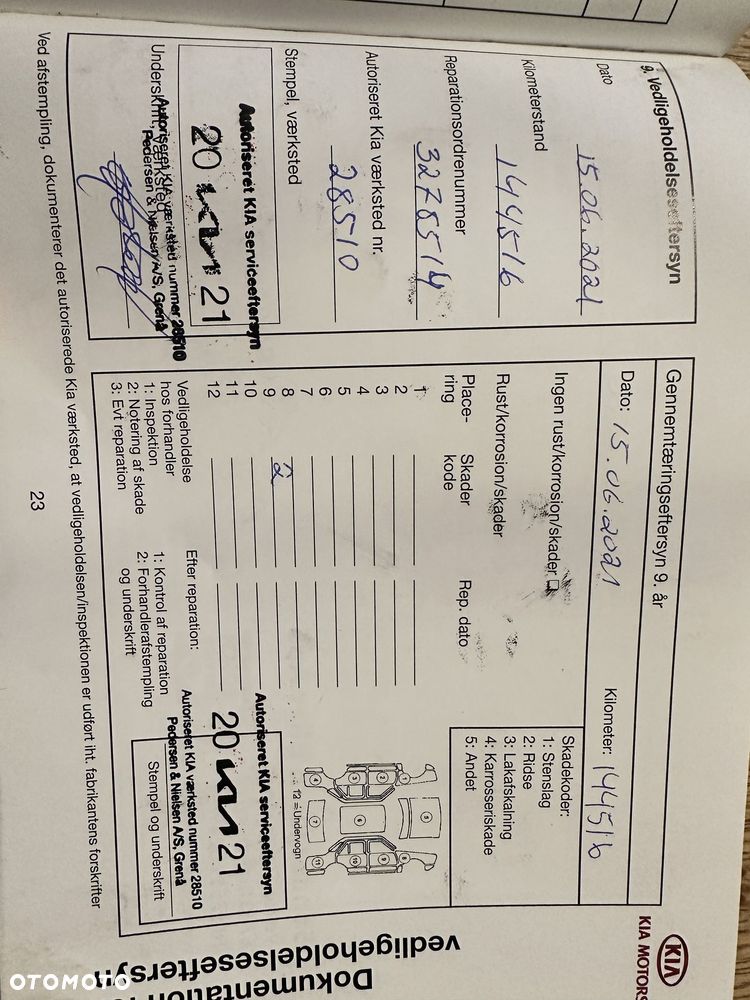 KIA
KIA MOTORS
Dokumentation
vedligeholdelseseftersyn
9. Vedligeholdelseseftersyn
Dato 15.06.2021
Kilometerstand 144516
Reparationsordrenummer 3278514
Autoriseret Kia værksted nr. 28510
Stempel, værksted
Autoriseret KIA serviceeftersyn
20 KIA 21
Autoriseret KIA værksted nummer 28510
Pedersen & Nielsen A/S, Grenå
Underskrift, værksted
Gennemtæringseftersyn 9. år
Dato: 15.06.2021 Kilometer: 144516
Ingen rust/korrosion/skader
Rust/korrosion/skader
Place- Skader Rep. dato
ring kode
1
2
3
4
5
6
7
8 2
9
10
11
12
Skadekoder:
1: Stenslag
2: Ridse
3: Lakafskalning
4: Karrosseriskade
5: Andet
12 = Undervogn
Vedligeholdelse
hos forhandler
1: Inspektion
2: Notering af skade
3: Evt reparation
Efter reparation:
1: Kontrol af reparation
2: Forhandlerafstempling
og underskrift
Autoriseret KIA serviceeftersyn
20 KIA 21
Autoriseret KIA værksted nummer 28510
Pedersen & Nielsen A/S, Grenå
Stempel og underskrift
Ved afstempling, dokumenterer det autoriserede Kia værksted, at vedligeholdelsen/inspektionen er udført iht. fabrikantens forskrifter
23
OTOMOTO